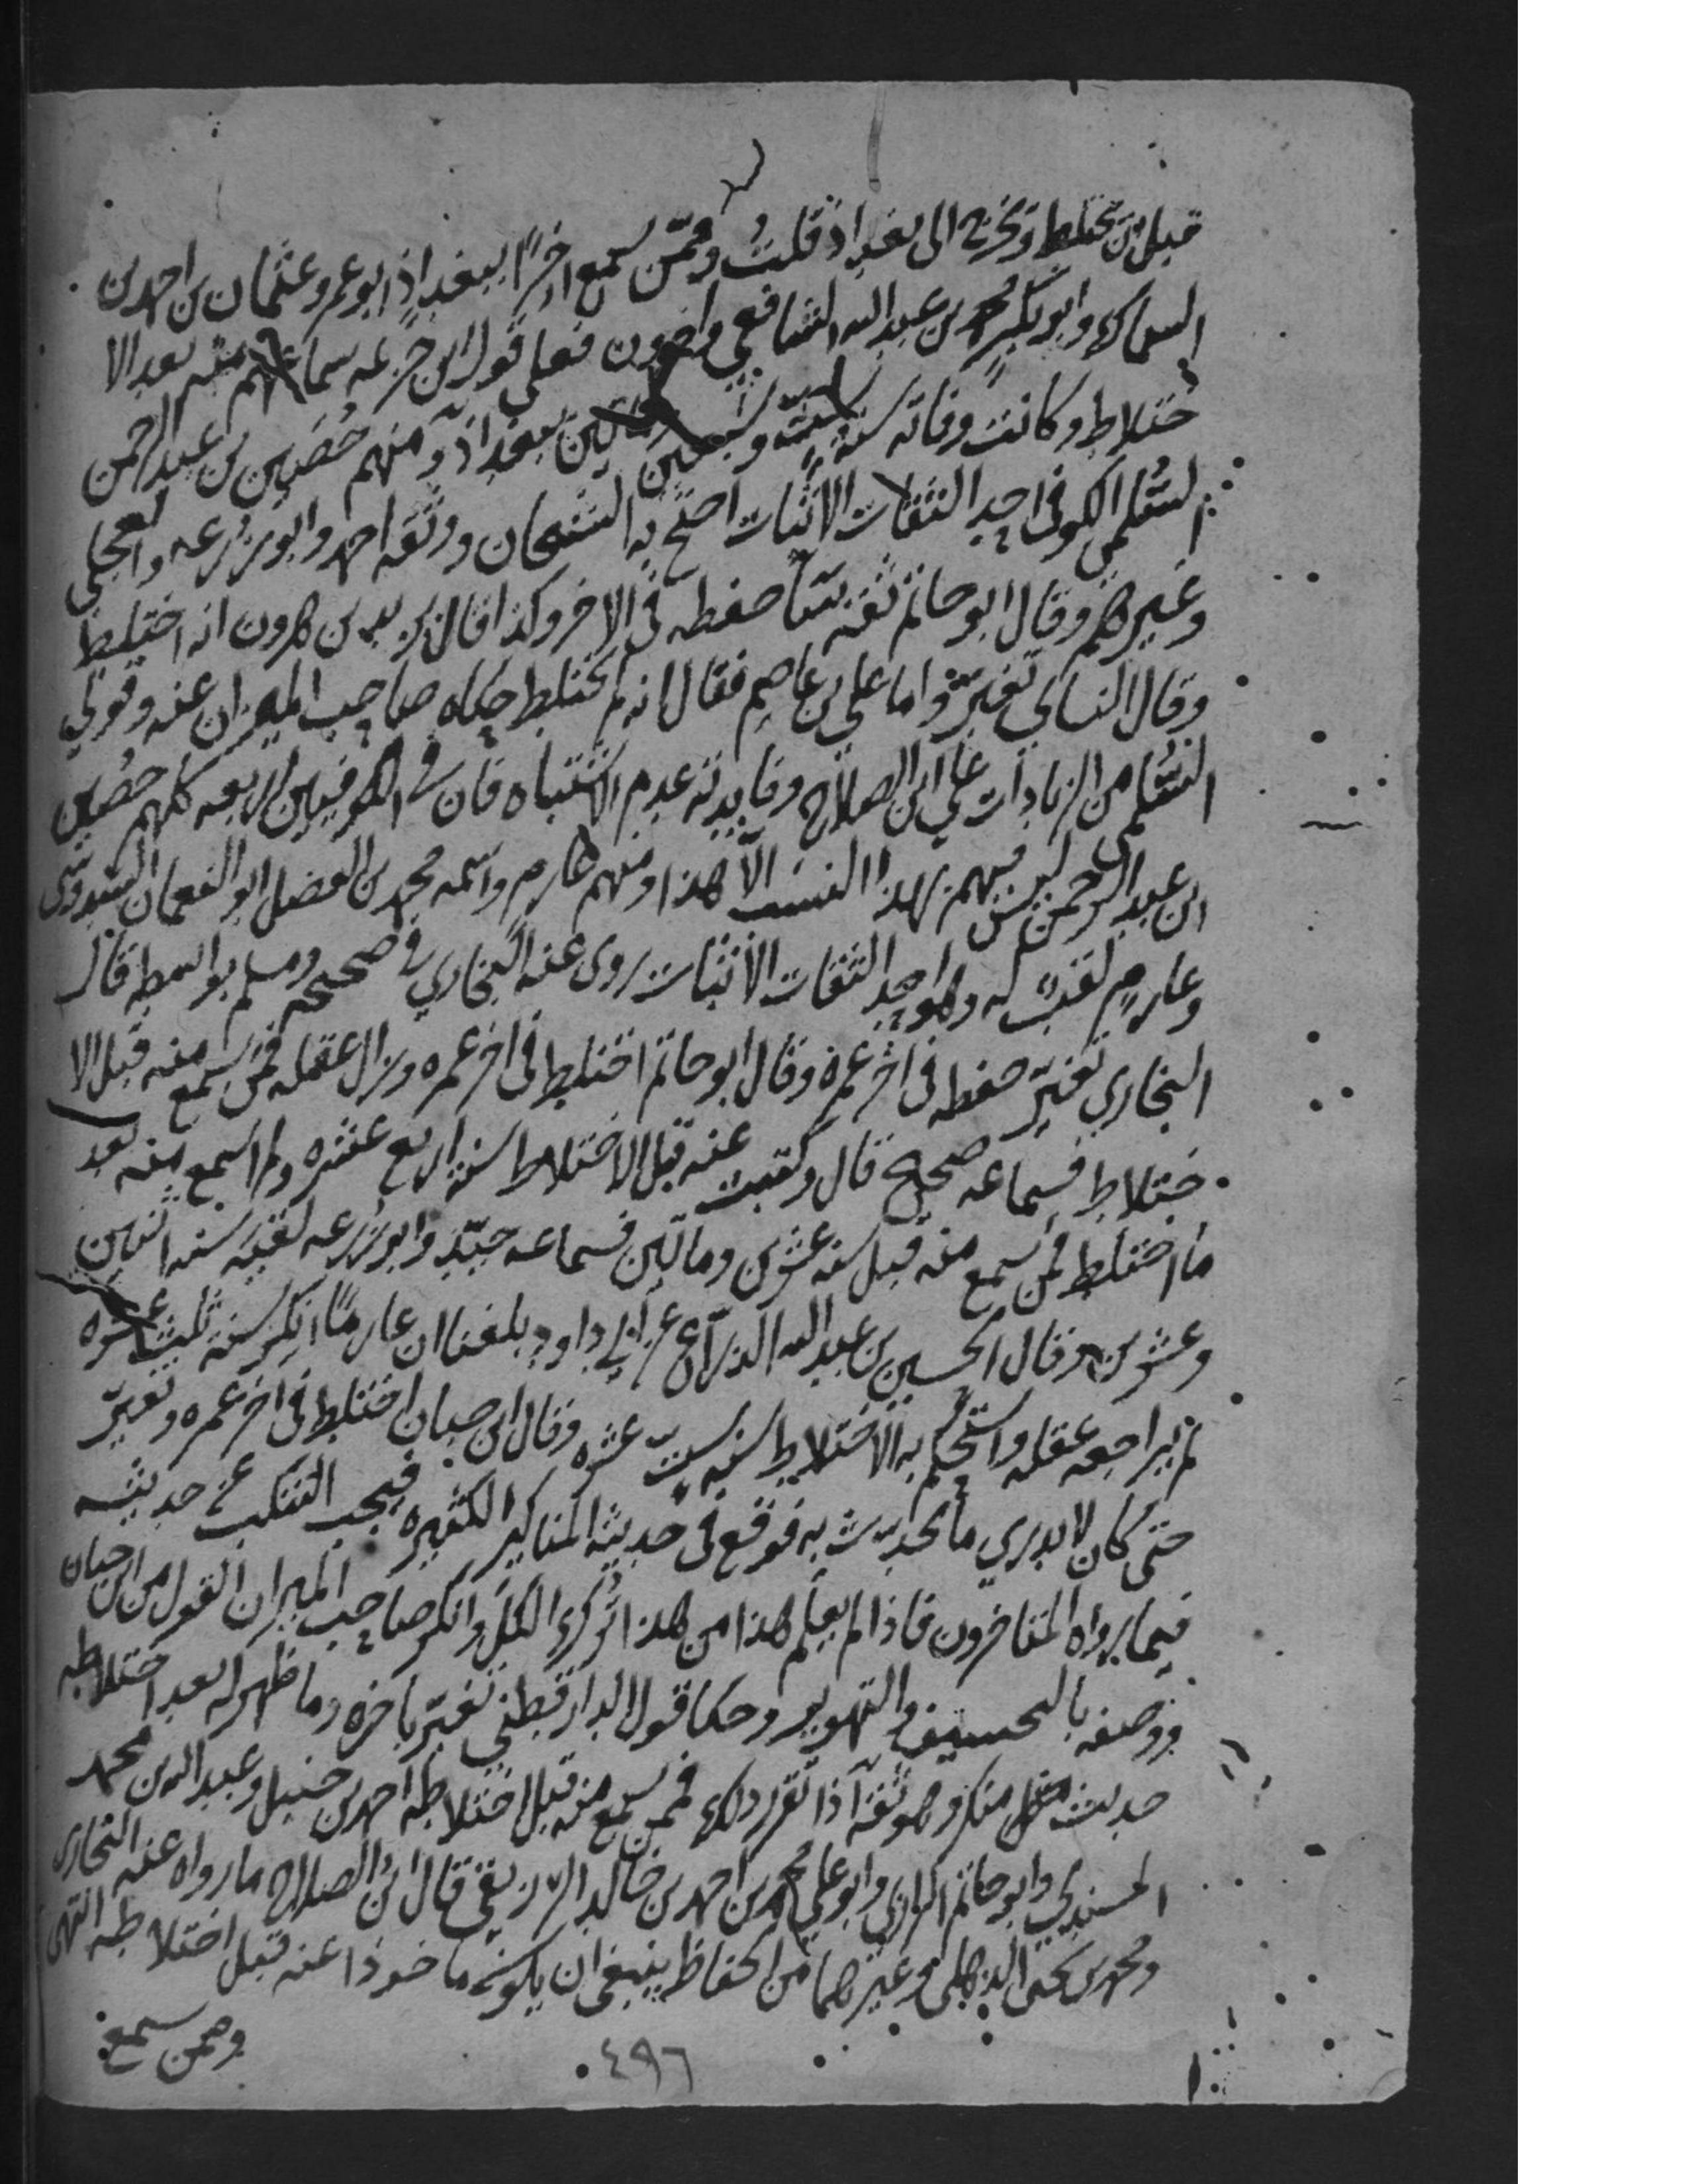 قبل ان يختلط ويخرج الى بغداذ قلت وممن سمع اخرًا ببغداذ ابو عمرو عثمان بن احمد بن
السماك وابو بكر محمد بن عبد الله الشافعي واخرون فعلى قول ابن خزيمه سماعهم منه بعد الا
ختلاط وكانت وفاته سنة ست وسبعين ومائتين ببغداذ ومنهم حُصَين بن عبد الرحمن
السُّلمي الكوفي احد الثقات الاثبات احتج به الشيخان ووثقه احمد وابو زرعه والعجلي
وغيرهم وقال ابو حاتم ثقة ساء حفظه في الاخر وكذا قال يزيد بن هرون انه اختلط
وقال النسائي تغيّر واما علي بن عاصم فقال انه لم يختلط حكاه صاحب الميزان عنه وقولي
السُّلمي من الزيادات على ابن الصلاح وفايدته عدم الاشتباه فان في الكوفيين اربعه كلهم حصُين
ابن عبد الرحمن ليس فيهم بهذا النسب الّا هذا ومنهم عارم واسمه محمد بن الفضل ابو النعمان السدوسي
وعارم لقب له وهو احد الثقات الاثبات روى عنه البخاري في صحيحه ومسلم بواسطه قال
البخاري تغيّر حفظه في اخر عمره وقال ابو حاتم اختلط في اخر عمره وزال عقله فمن سمع منه قبل الا
ختلاط فسماعه صحيح قال وكتبت عنه قبل الاختلاط سنة اربع عشره ولم اسمع منه بعد
ما اختلط فمن سمع منه قبل سنه عشرين ومائتين فسماعه جيّد وابو زُرعه لقيه سنه اثنين
وعشرين وقال الحسين بن عبد الله الذرّاع عن ابي داود بلغنا ان عارمًا انكر سنة ثلث عشره
ثم راجعه عقله واستحكم به الاختلاط سنه ستّ عشره وقال ابن حبان اختلط في اخر عمره وتغيّر
حتى كان لا يدري ما يحدّث به فوقع في حديثه المناكير الكثيره فيجب التنكب عن حديثه
فيما رواه المتاخرون فاذا لم يعلم هذا من هذا تُرك الكل وانكر صاحب الميزان القول من ابن حبان
ووصفه بالتخسيف والتهوير وحكا قول الدارقطني تغيّر باخره وما ظهر له بعد اختلاطه
حديث منكر وهو ثقه اذا تقرر ذلك فممن سمع منه قبل اختلاطه احمد بن حنبل وعبد الله بن محمد
المسندي وابو حاتم الرازي وابو علي محمد بن احمد بن خالد الزريقي قال ابن الصلاح ما رواه عنه البخاري
ومحمد بن يحيى الذهلي وغيرهما من الحفاظ ينبغي ان يكون ماخوذا عنه قبل اختلاطه انتهى
وممن سمع
٤٩٦